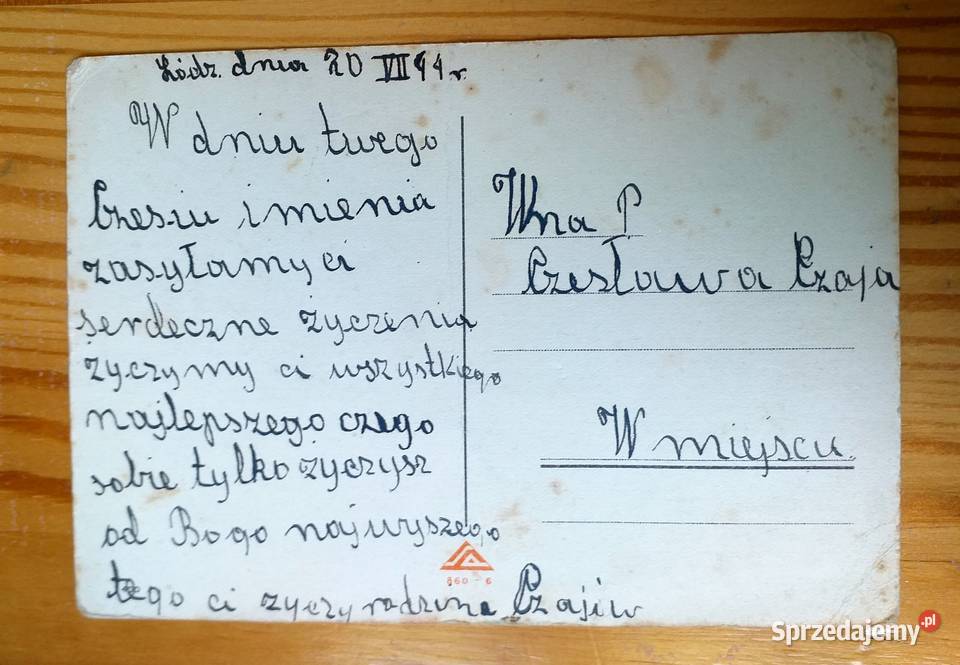 Łódz. dnia 20 VII 44 r.
W dniu twego
Czesiu imienia
zasyłamy ci
serdeczne życzenia
życzymy ci wszystkiego
najlepszego czego
sobie tylko życzysz
od Bogo najwyszego
tego ci życzy rodzina Czajów
Wna P
Czesława Czaja
W miejscu.
860-6
Sprzedajemy.pl